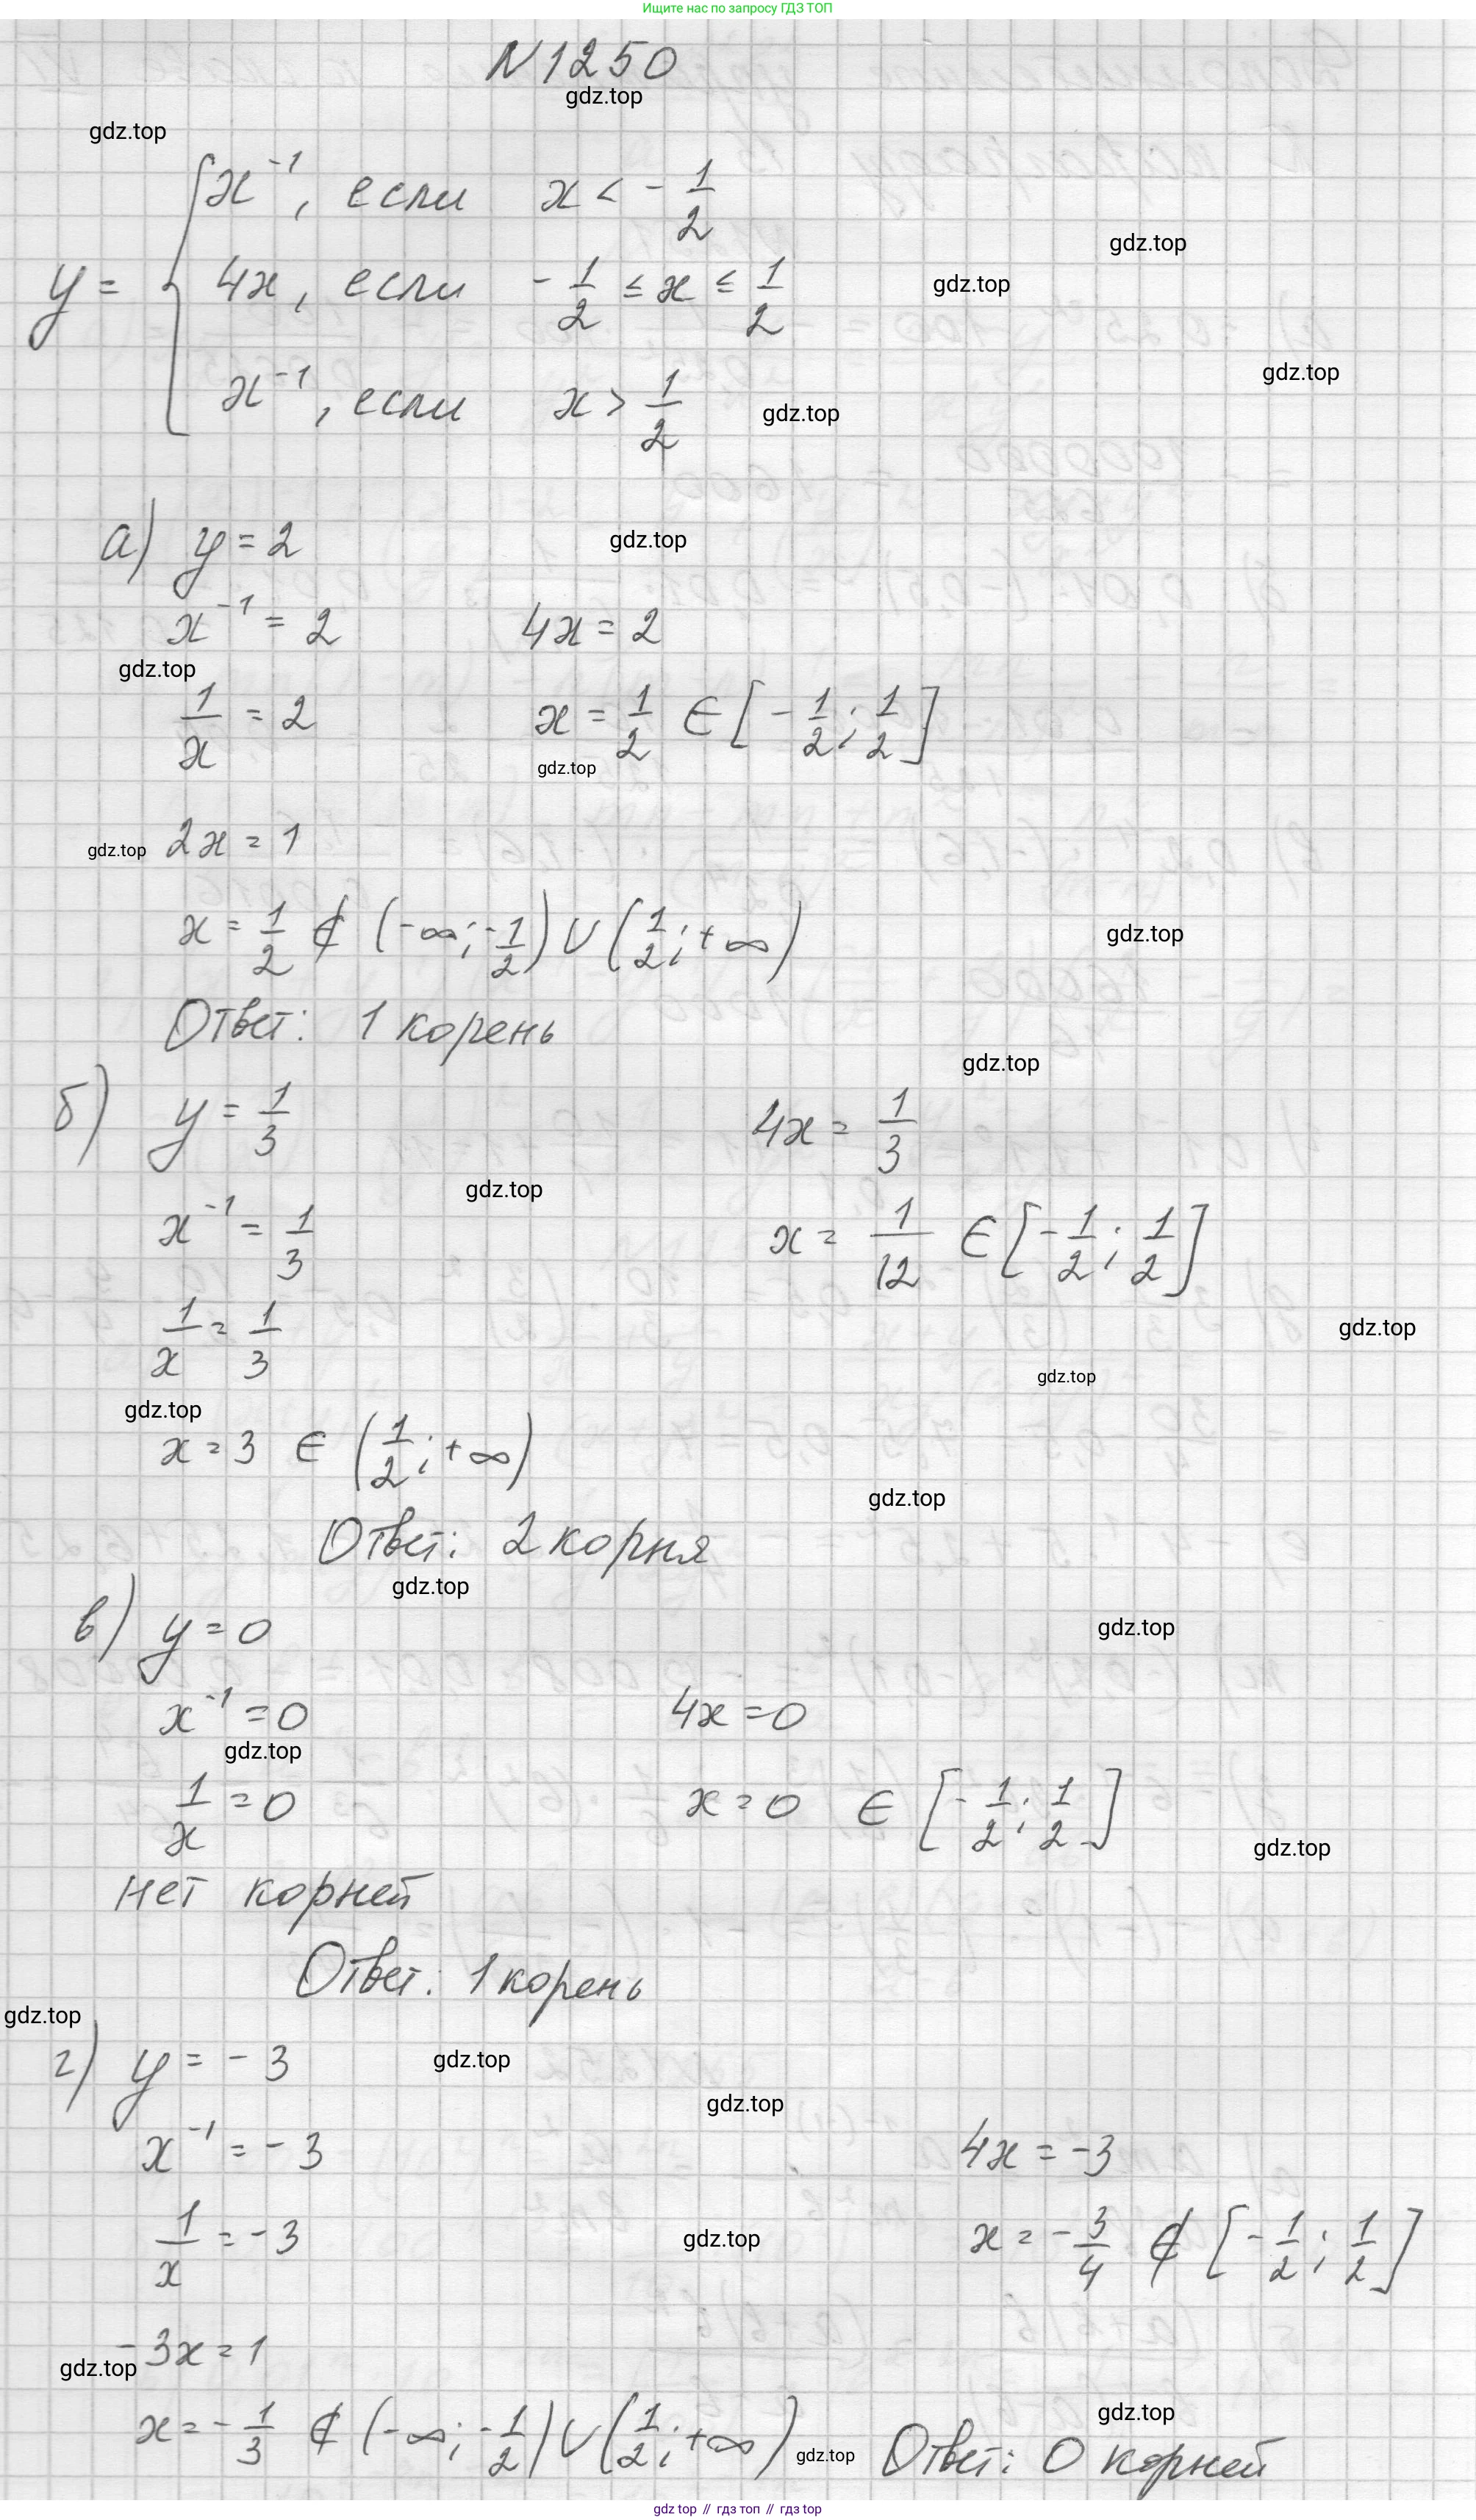 Ищите нас по запросу ГДЗ ТОП
N 1250
gdz.top
gdz.top
x⁻¹, если x < -1/2
gdz.top
y = { 4x, если -1/2 ≤ x ≤ 1/2
gdz.top
gdz.top
x⁻¹, если x > 1/2
gdz.top
а) y = 2
gdz.top
x⁻¹ = 2 4x = 2
gdz.top
1/x = 2 x = 1/2 ∈ [-1/2; 1/2]
gdz.top
gdz.top 2x = 1
x = 1/2 ∉ (-∞; -1/2) ∪ (1/2; +∞)
gdz.top
Ответ: 1 корень
gdz.top
б) y = 1/3 4x = 1/3
gdz.top
x⁻¹ = 1/3 x = 1/12 ∈ [-1/2; 1/2]
1/x = 1/3
gdz.top
gdz.top
gdz.top
x = 3 ∈ (1/2; +∞)
gdz.top
Ответ: 2 корня
gdz.top
в) y = 0
gdz.top
x⁻¹ = 0 4x = 0
gdz.top
1/x = 0 x = 0 ∈ [-1/2; 1/2]
gdz.top
нет корней
Ответ: 1 корень
gdz.top
г) y = -3
gdz.top
gdz.top
x⁻¹ = -3 4x = -3
1/x = -3 x = -3/4 ∉ [-1/2; 1/2]
gdz.top
-3x = 1
gdz.top
gdz.top
x = -1/3 ∉ (-∞; -1/2) ∪ (1/2; +∞) gdz.top Ответ: 0 корней
gdz top // гдз топ // гдз top